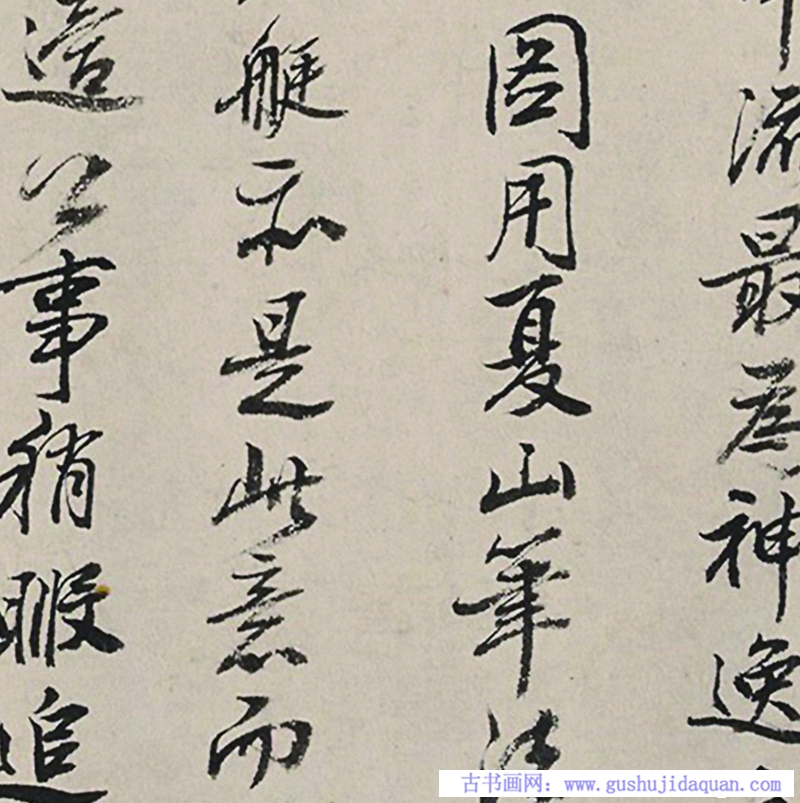 流最為神逸
圖用夏山筆法
艇是此意而
造公事稍暇追
古书画网：www.gushujidaquan.com